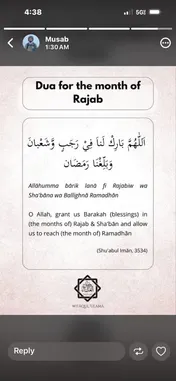 4:38
5G
Musab
1:30 AM
Dua for the month of
Rajab
اَللّٰهُمَّ بَارِكْ لَنَا فِيْ رَجَبٍ وَّشَعْبَانَ
وَبَلِّغْنَا رَمَضَانَ
Allāhumma bārik lanā fi Rajabiw wa
Sha'bāna wa Ballighnā Ramadhān
O Allah, grant us Barakah (blessings) in
(the months of) Rajab & Sha'bān and allow
us to reach (the month of) Ramadhān
(Shu'abul Imān, 3534)
Reply